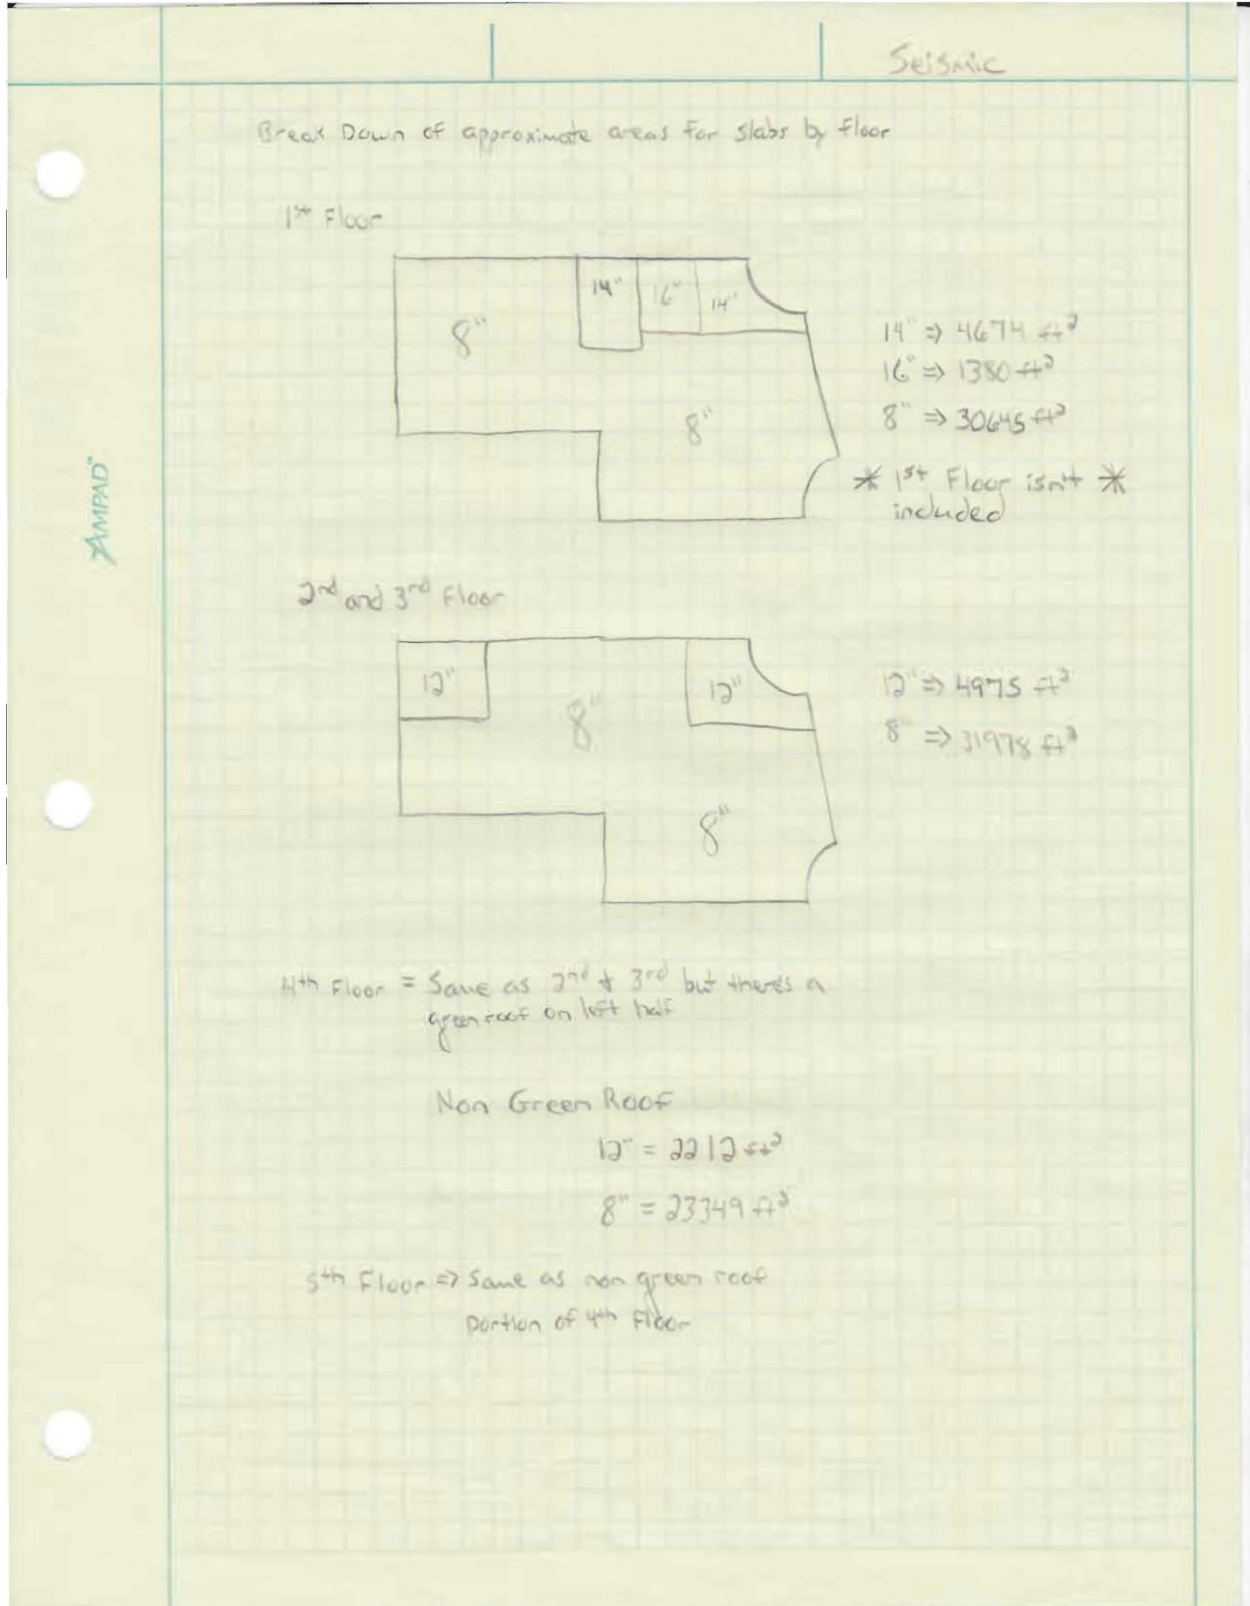 Seismic
Break Down of approximate areas for slabs by floor
1st Floor
8"
14"
16"
14"
8"
14" => 4674 ft²
16" => 1380 ft²
8" => 30645 ft²
* 1st Floor isn't *
included
AMPAD™
2nd and 3rd Floor
12"
8"
12"
8"
12" => 4975 ft²
8" => 31978 ft²
4th Floor = Same as 2nd & 3rd but there's a
green roof on left half
Non Green Roof
12" = 2212 ft²
8" = 23349 ft²
5th Floor => Same as non green roof
portion of 4th Floor